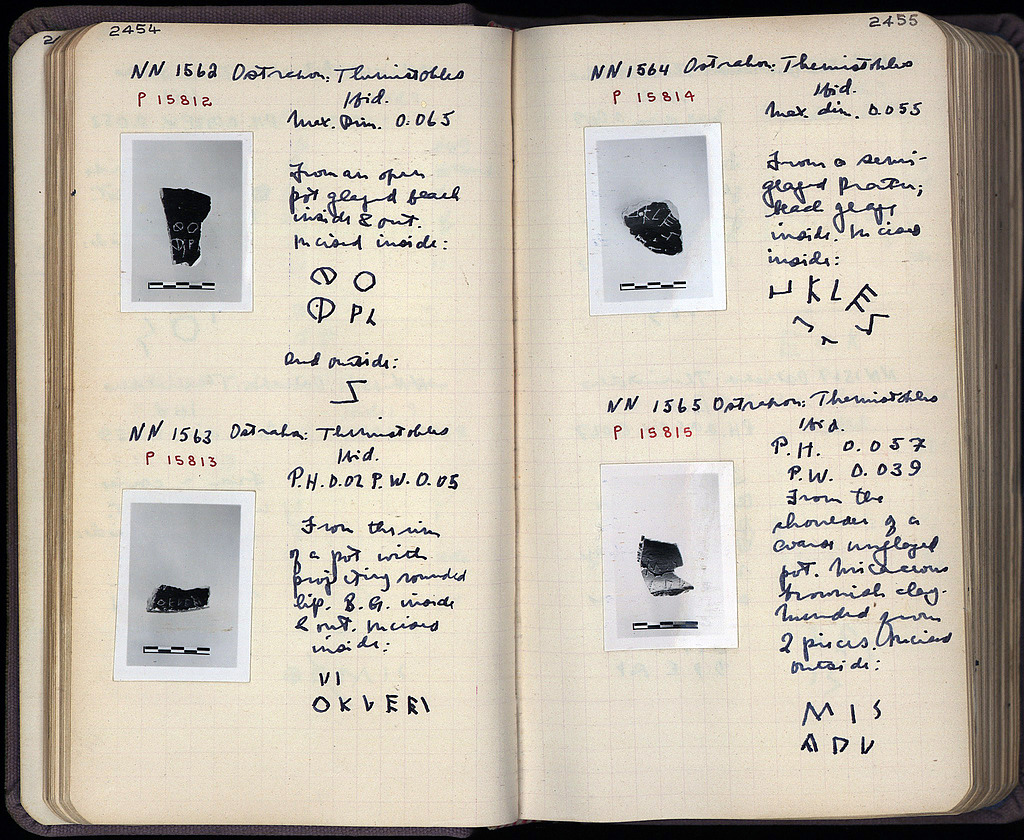 2454
NN 1562 Ostrakon: Themistokles
P 15812
Ibid.
Max. Dim. 0.065
From an open
pot glazed black
inside & out.
Incised inside:
And outside:
NN 1563 Ostrakon: Themistokles
P 15813
Ibid.
P.H. 0.02 P.W. 0.05
From the rim
of a pot with
projecting rounded
lip. B.G. inside
& out. Incised
inside:
2455
NN 1564 Ostrakon: Themistokles
P 15814
Ibid.
Max. dim. 0.055
From a semi-
glazed krater;
black glaze
inside. Incised
inside:
NN 1565 Ostrakon: Themistokles
P 15815
Ibid.
P.H. 0.057
P.W. 0.039
From the
shoulder of a
coarse unglazed
pot. Micaceous
brownish clay.
Mended from
2 pieces. Incised
outside:
Μ Ι S